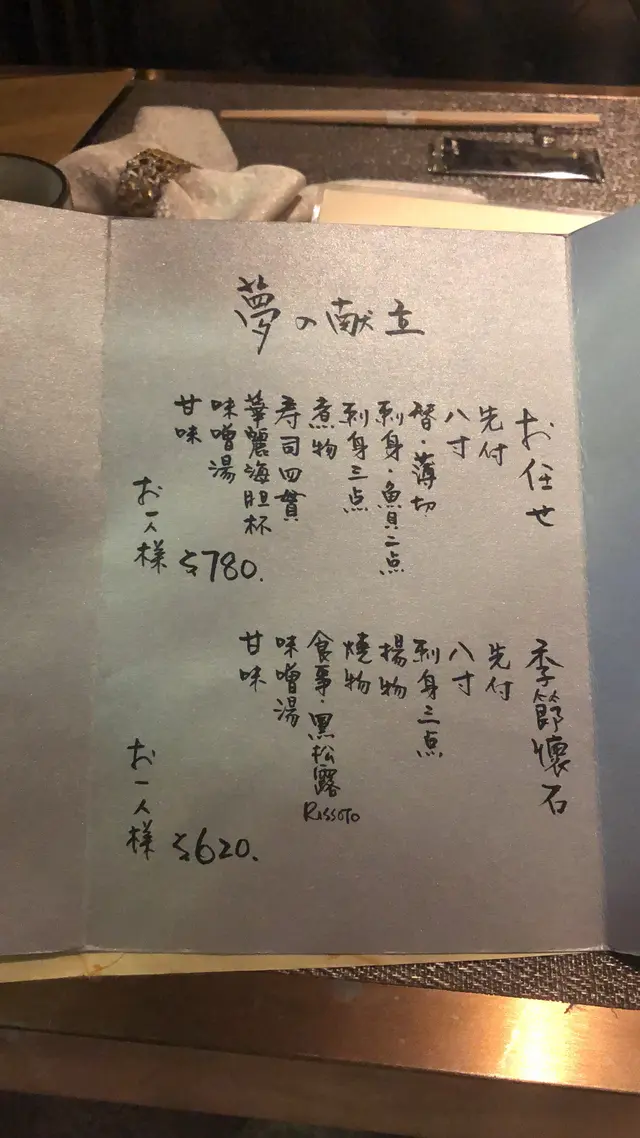 夢の献立
お任せ
先付
八寸
替・薄切
刺身・魚貝二点
刺身三点
煮物
寿司四貫
華麗海胆杯
味噌湯
甘味
お一人様 $780.
季節懐石
先付
八寸
刺身三点
揚物
焼物
食事・黒松露 Rissoto
味噌湯
甘味
お一人様 $620.